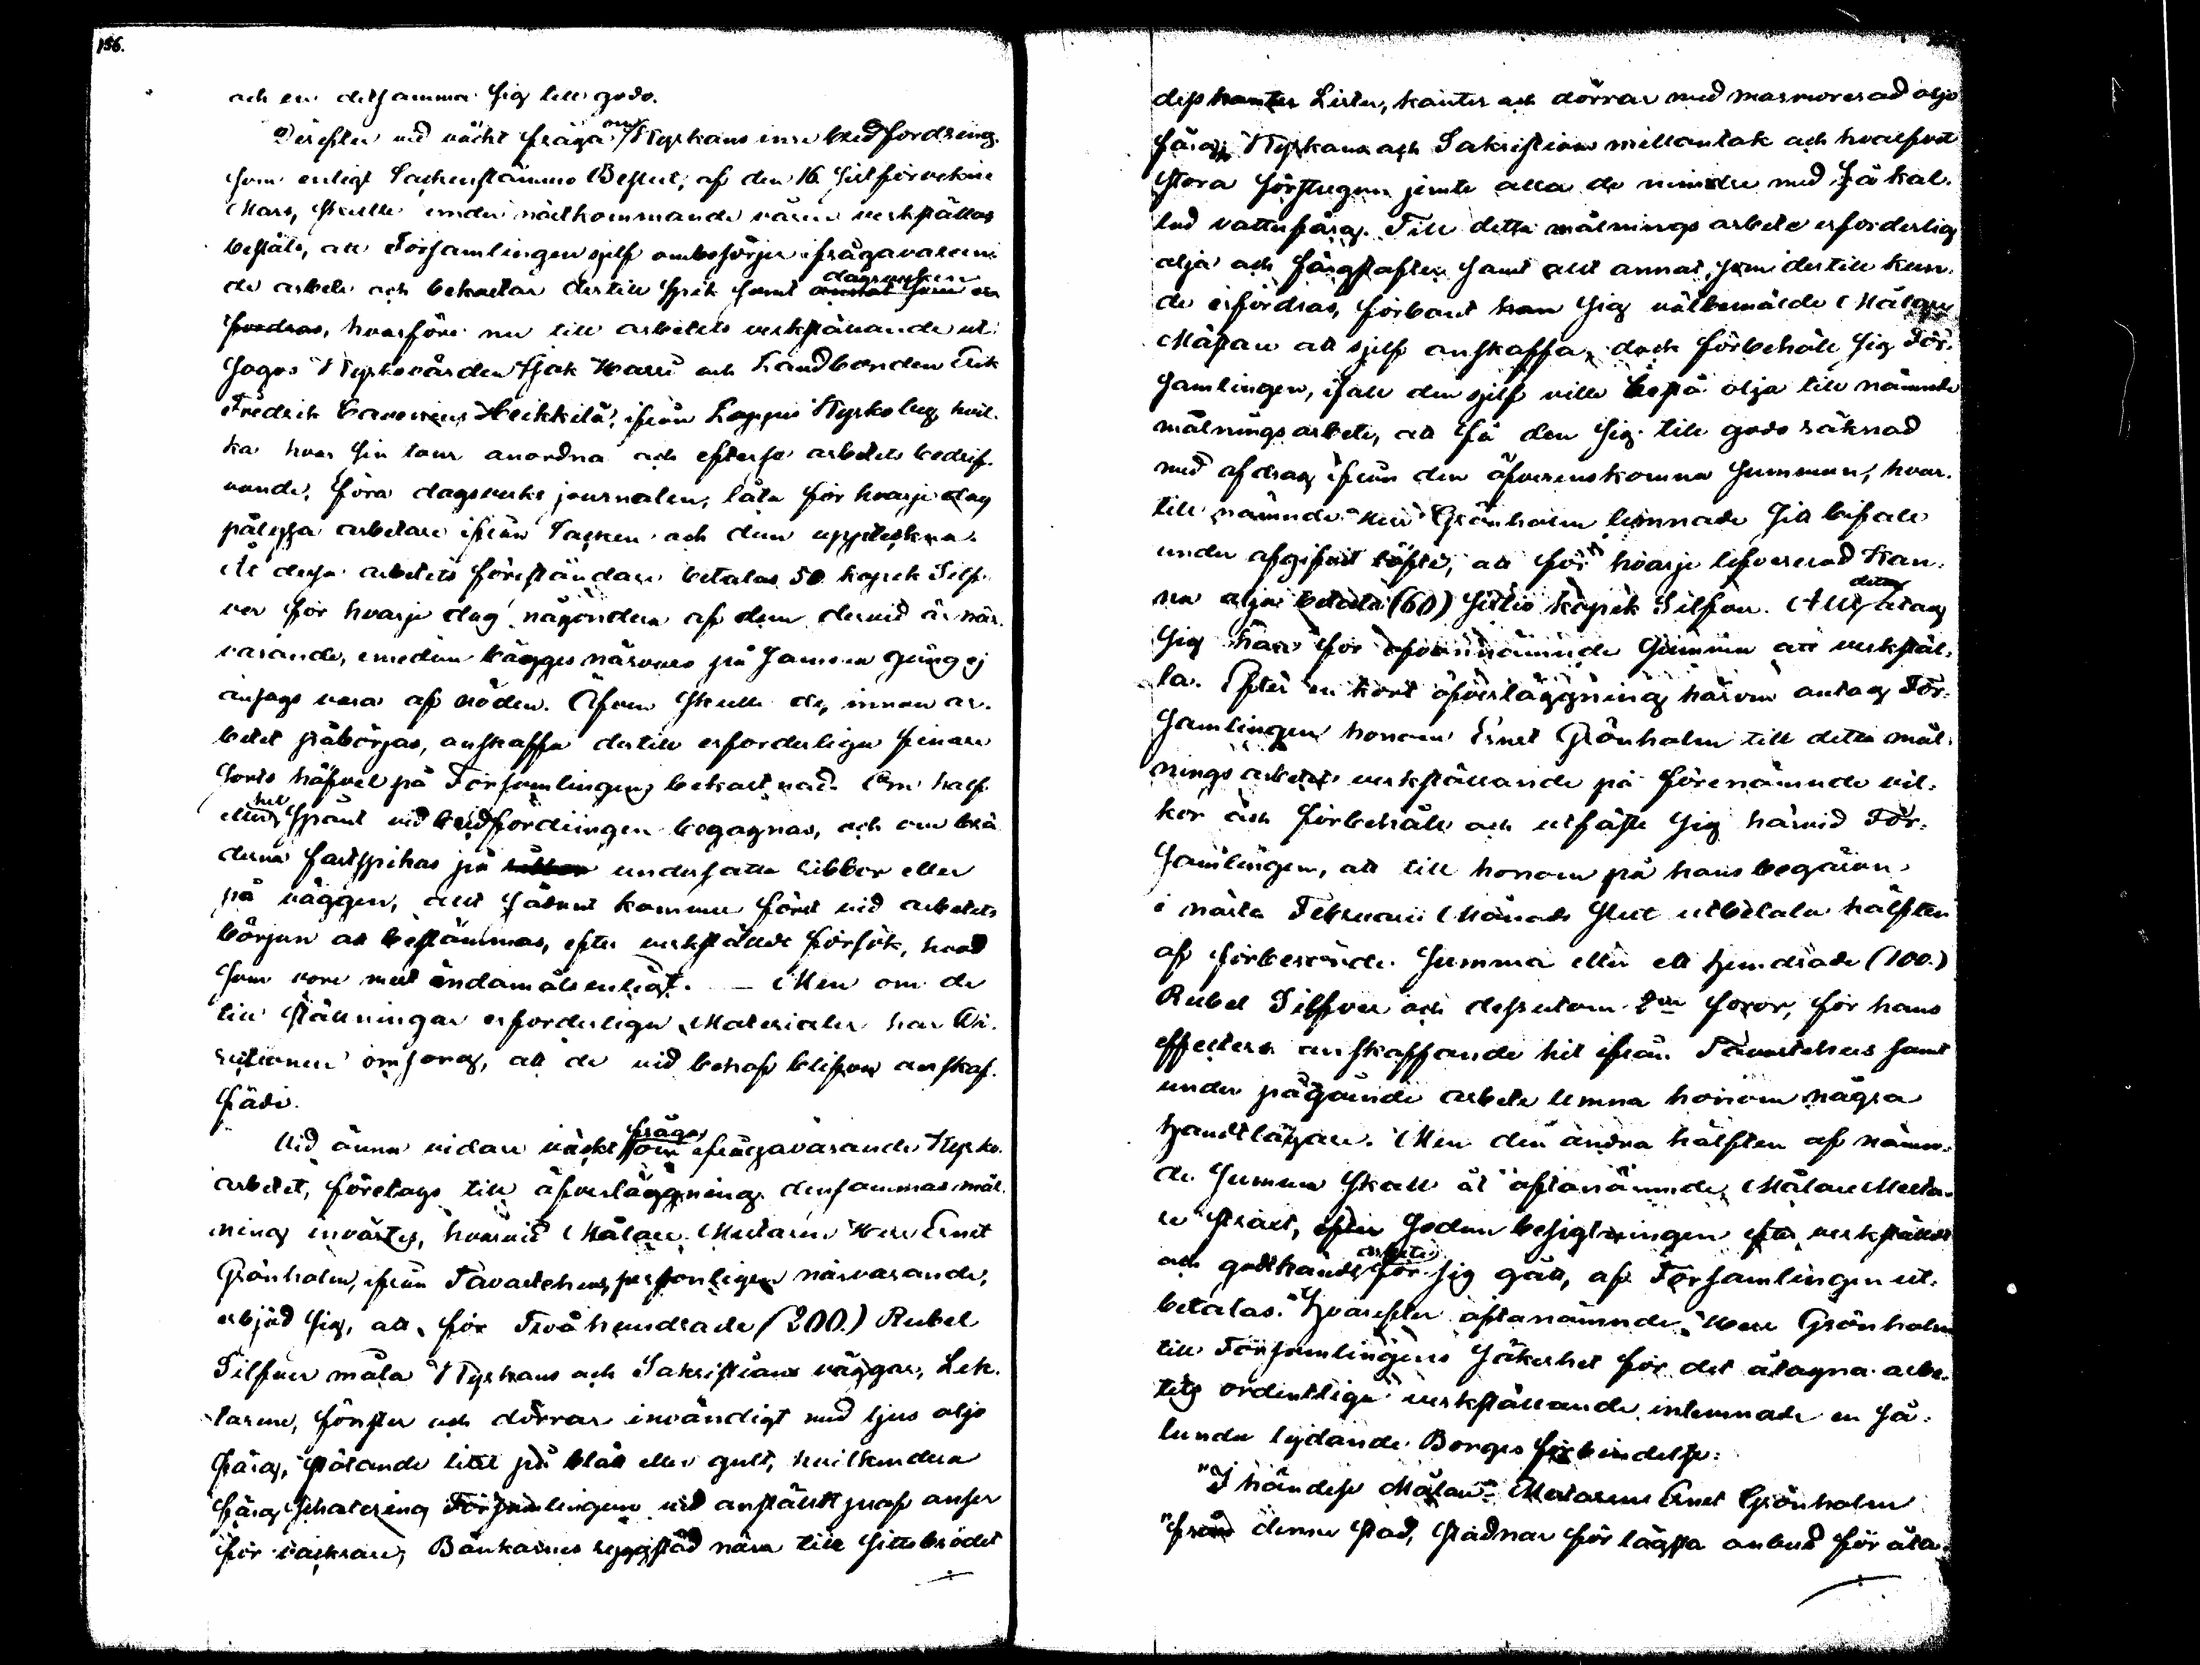 156.
och en detsamma sig till godo.
Derefter vid väckt fråga om Kyrkans inre brädfordring,
som enligt Sockenstämmo Beslut, af den 16 sistförvekne
Mars, skulle under nästkommande våren verkställas
beslöts, att Församlingen sjelf ombesörjer ifrågavaran-
de arbete och bekostar dertill spik samt dagsverken
hvarföre nu till arbetets verkställande ut-
sågos Kyrkovärden Isak Harri och Landbonden Erik
Fredrik Heikkilä, ifrån Loppis Kyrkoby, hvil-
ka hvar sin tour anordna och efterse arbetets bedrif-
vande, föra dagsverks journalen, låta för hvarje dag
pålysa arbetare ifrån Socken och dem uppteckna.
Åt dessa arbetets föreståndare betalas 50 kopek Silf-
ver för hvarje dag någondera af dem dervid är när-
varande, emedan bägges närvaro på samma gång ej
ansågs vara af nöden. Äfven skulle de, innan ar-
betet påbörjas, anskaffa dertill erforderliga finare
sorts häfvel på Församlingens bekostnad. Om half
eller hel spånt vid brädfordringen begagnas, och om brä-
derna fastspikas på undersatta ribbor eller
på väggen, allt sådant kommer först vid arbetets
början att bestämmas, efter verkstäldt försök, hvad
som vore mest ändamålsenligt. — Men om de
till ställningar erforderliga Materialer har Di-
rectionen omsorg, att de vid behof blifva anskaf-
fade.
Vid ännu vidare väckt fråga om ifrågavarande Kyrko-
arbetet, företogs till öfverläggning densammas mål-
ning invärtes, hvarvid Målare Mästaren Herr Ernst
Grönholm, ifrån Tavastehus, personligen närvarande,
erbjöd sig, att för Tvåhundrade (200.) Rubel
Silfver måla Kyrkans och Sakristians väggar, Lek-
tarene, fönster och dörrar invändigt med ljus olje
färg, stötande litet på blått eller gult, hvilkendera
färg schatering Församlingen vid anstäldt prof anser
för vackrare, Bänkarnes ryggstöd nära till sittbrädet
dess Lister, kanter och dörrar med marmorerad olje
färg, Kyrkans och Sakristians mellantak och hvalfvet
stora förstugan jemte alla de mindre med så kal-
lad vattufärg. Till detta målnings arbete erforderlig
olja och färgstofter samt allt annat, som dertill kun-
de erfordras, förband han sig välbemälde Målare
Mästare att sjelf anskaffa, dock förbehöll sig För-
samlingen, ifall den sjelf ville bestå olja till nämnde
målnings arbete, att få den sig till godo räknad
med afdrag ifrån den öfverenskomna summan, hvar-
till nämnde Herr Grönholm lemnade sitt bifall
under afgifvet löfte, att för hvarje lefvererad Kan-
na olja betala (60) sextio kopek Silfver. Allt detta åtog
sig han för ofvannämnde summa att verkstäl-
la. Efter en kort öfverläggning härom antog För-
samlingen honom Ernst Grönholm till detta mål-
nings arbetets verkställande på förenämnde vil-
kor och förbehåll och utfäste sig härvid För-
samlingen, att till honom på hans begäran
i nästa Februarii Månads slut utbetala hälften
af förberörde summa eller ett hundrade (100.)
Rubel Silfver och dessutom 2ne foror, för hans
effecters anskaffande hit ifrån Tavastehus samt
under pågående arbete lemna honom några
handtlangare. Men den andra hälften af nämn-
de summa skall åt oftanämnde Målare Mästa-
re strax, sedan besigtningen efter verkstäldt
och godkändt arbete för sig gått, af Församlingen ut-
betalas. Hvarefter oftanämnde Herr Grönholm
till Församlingens säkerhet för det åtagna arbe-
tets ordentliga verkställande inlemnade en så-
lunda lydande Borges förbindelse:
"I händelse Målare Mästaren Ernst Grönholm
"från denna stad, stadnar för lägsta anbud för åta-